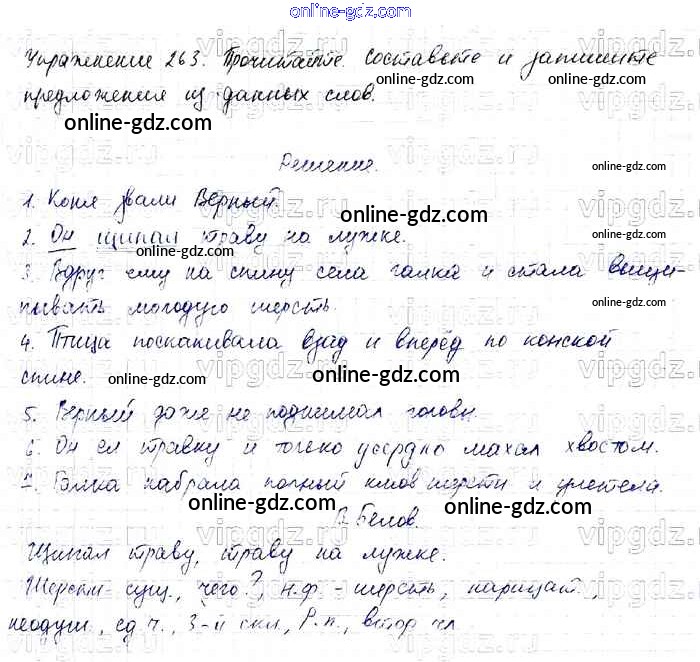 online-gdz.com
Упражнение 263. Прочитайте. Составьте и запишите
online-gdz.com
online-gdz.com
предложения из данных слов.
online-gdz.com
Решение.
online-gdz.com
1. Коня звали Верный.
online-gdz.com
2. Он щипал траву на лужке.
online-gdz.com
3. Вдруг ему на спину села галка и стала выщи-
пывать молодую шерсть.
online-gdz.com
4. Птица поскакивала взад и вперёд по конской
спине.
online-gdz.com
online-gdz.com
online-gdz.com
5. Верный даже не поднимал головы.
6. Он ел травку и только усердно махал хвостом.
7. Галка набрала полный клюв шерсти и улетела.
online-gdz.com
online-gdz.com
В. Белов.
Щипал траву, траву на лужке.
Шерсти - сущ., чего?, н.ф. - шерсть, нарицат.,
неодуш., ед. ч., 3-й скл., Р.п., втор. чл.